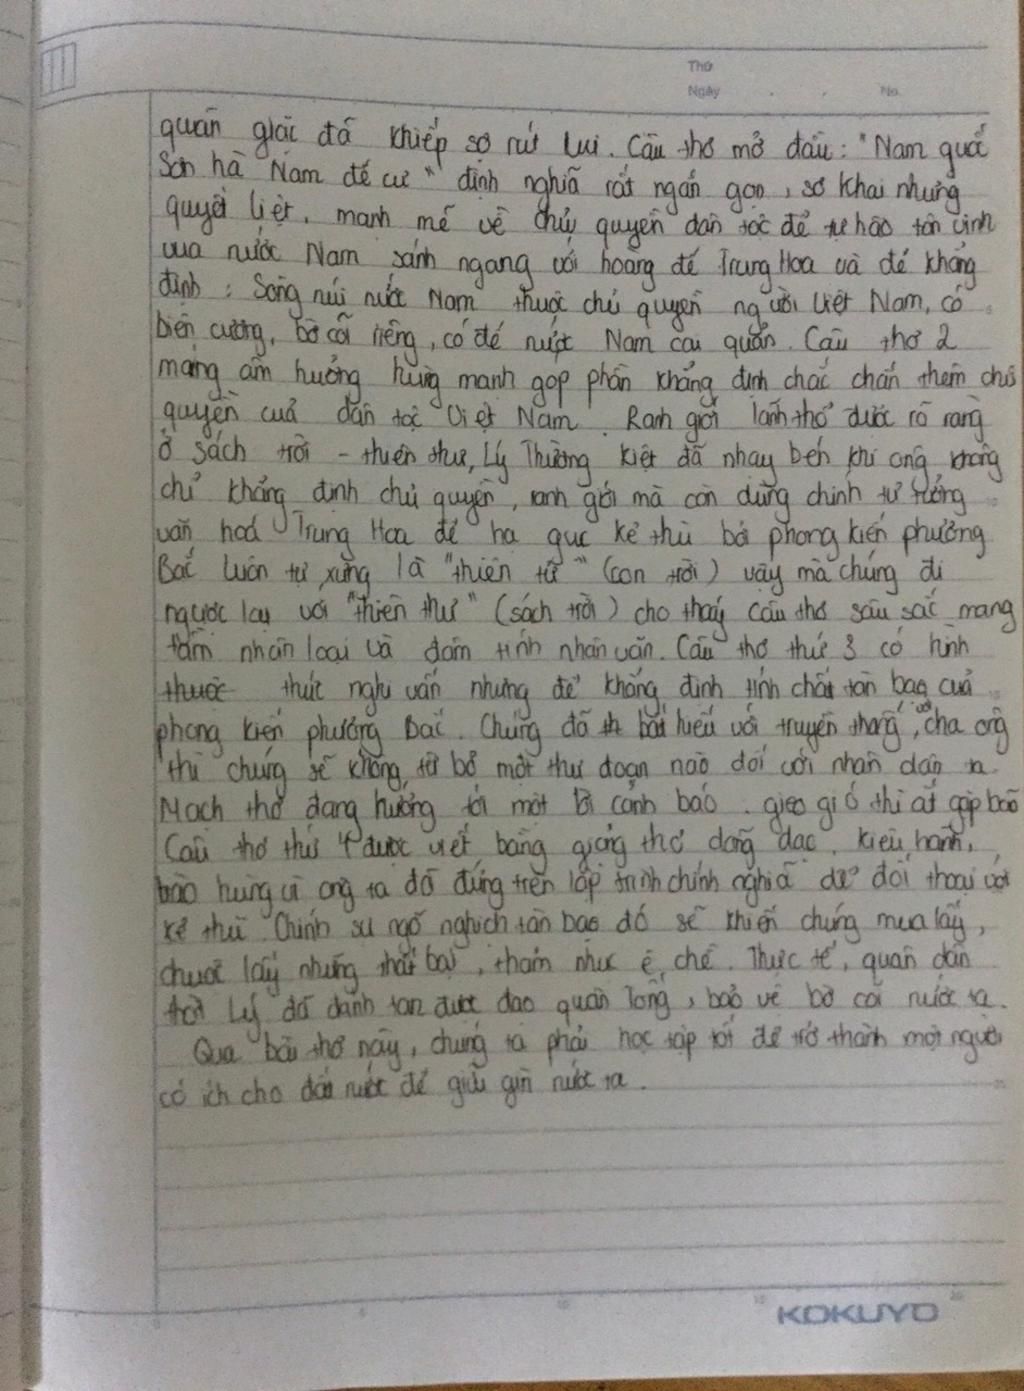 Thứ
Ngày . . No.
quân giặc đã khiếp sợ rút lui. Câu thơ mở đầu: "Nam quốc
Sơn hà Nam đế cư" định nghĩa rất ngắn gọn, sơ khai nhưng
quyết liệt, mạnh mẽ về chủ quyền dân tộc để tự hào tôn vinh
vua nước Nam sánh ngang với hoàng đế Trung Hoa và để khẳng
định: Sông núi nước Nam thuộc chủ quyền người Việt Nam, có
biên cương, bờ cõi riêng, có đế nước Nam cai quản. Câu thơ 2
mang âm hưởng hùng mạnh góp phần khẳng định chắc chắn thêm chủ
quyền của dân tộc Việt Nam. Ranh giới lãnh thổ được rõ ràng
ở sách trời - thiên thư, Lý Thường Kiệt đã nhạy bén khi ông không
chỉ khẳng định chủ quyền, ranh giới mà còn dùng chính tư tưởng
văn hoá Trung Hoa để hạ gục kẻ thù bởi phong kiến phương
Bắc luôn tự xưng là "thiên tử" (con trời) vậy mà chúng đi
ngược lại với "thiên thư" (sách trời) cho thấy câu thơ sâu sắc mang
tầm nhân loại và đậm tính nhân văn. Câu thơ thứ 3 có hình
thước thức nghi vấn nhưng để khẳng định tính chất tàn bạo của
phong kiến phương Bắc. Chúng đã th bất hiếu với truyền thống, với cha ông
thì chúng sẽ không từ bỏ một thủ đoạn nào đối với nhân dân ta.
Mạch thơ đang hướng tới một lời cảnh báo. gieo gió thì ắt gặp bão
Câu thơ thứ 4 được viết bằng giọng thơ dõng dạc, kiêu hãnh,
hào hùng vì ông ta đã đứng trên lập trình chính nghĩa để đối thoại với
kẻ thù. Chính sự ngỗ nghịch tàn bạo đó sẽ khiến chúng mua lấy,
chuốc lấy những thất bại, thảm như ê chề. Thực tế, quân dân
thời Lý đã đánh tan được đạo quân Tống, bảo vệ bờ cõi nước ta.
Qua bài thơ này, chúng ta phải học tập tốt để trở thành một người
có ích cho đất nước để giữ gìn nước ta.
KOKUYO